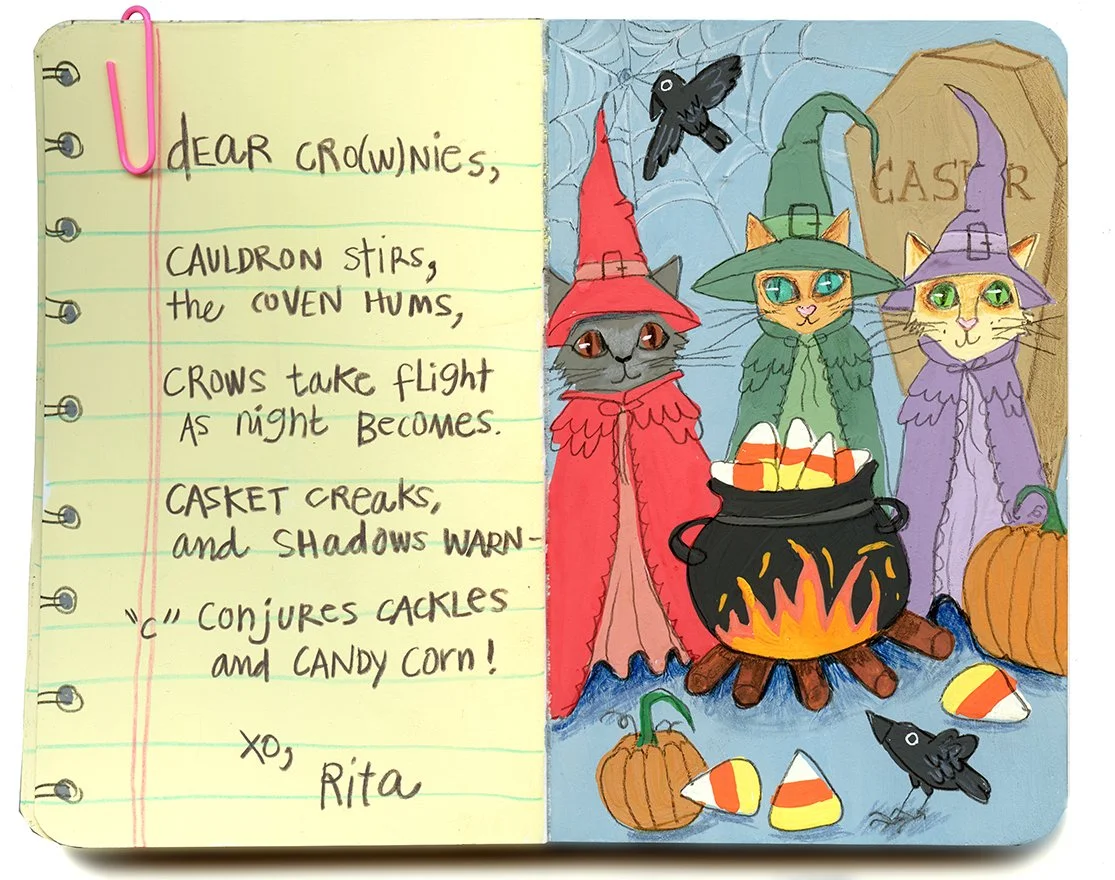 dEAR CRO(W)Nies,
CAULDRON stiRs,
the COVEN HUMS,
CROWS take flight
As night BeComes.
CASKET CReaks,
and SHadows WARN-
"C" ConjURes CACKLes
and CANDy CoRn!
XO,
Rita